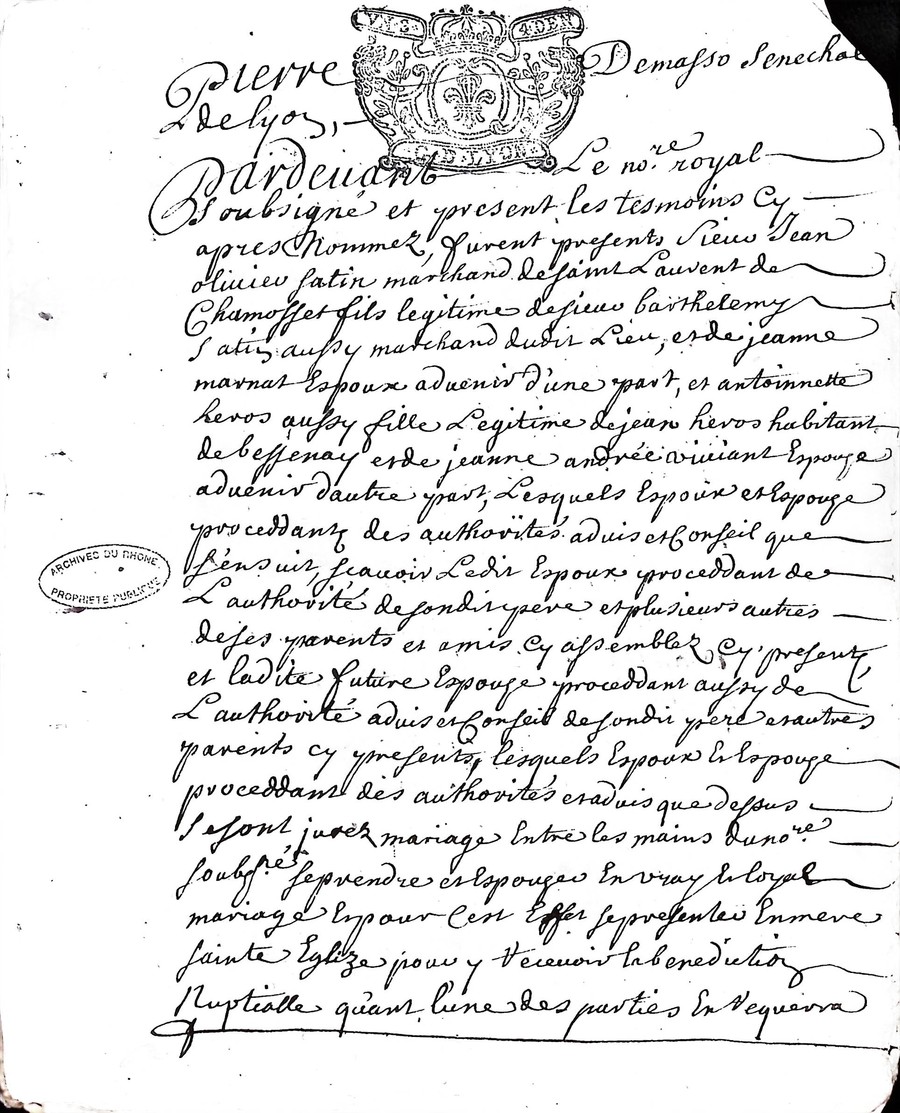 VN S 4 DEN
Pierre Demasso Senechal
de lyon,
G D LYON
Pardevant Le no.re royal
Soubsigné et present les tesmoins cy
apres nommez, furent presents Sieur Jean
olivier satin marchand de saint Laurent de
Chamosset fils legitime de sieur barthelemy
Satin aussy marchand dudit Lieu, et de jeanne
marnat Espoux advenir d'une part, et antoinnette
heros aussy fille Legitime de jean heros habitant
de bessenay et de jeanne andrée viviant Espouge
advenir dautre part, Lesquels Espoux et Espouge
proceddants des authorités advis et Conseil que
s'ensuit, scavoir Ledit Espoux proceddant de
L'authorité de sondit pere et plusieurs autres
de ses parents et amis cy assemblez cy presents
et ladite future Espouge proceddant aussy de
L'authorité advis et Conseil de sondit pere et autres
parents cy presents, lesquels Espoux Et Espouge
proceddant des authorités et advis que dessus
se sont jurez mariage Entre les mains du no.re
soubs.né se prendre et Espouger En vray Et loyal
mariage Et pour Cest Effet se presenter En mere
sainte Eglize pour y recevoir la benediction
Nuptialle quant l'une des parties En requerra
ARCHIVES DU RHONE
PROPRIETE PUBLIQUE